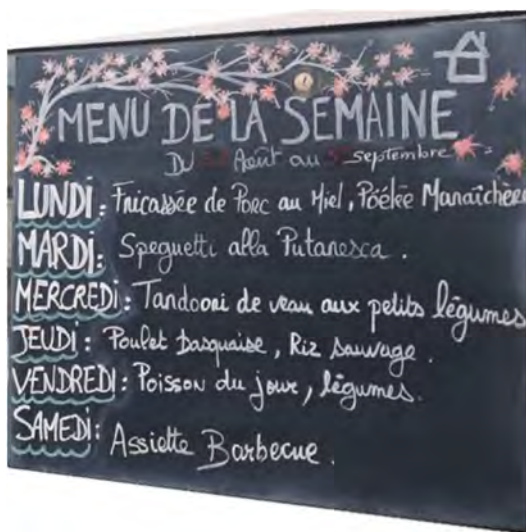 MENU DE LA SEMAINE
Du Août au Septembre
LUNDI : Fricassée de Porc au Miel, Poélée Maraîchère
MARDI : Speguetti alla Putanesca .
MERCREDI : Tandoori de veau aux petits légumes
JEUDI : Poulet basquaise, Riz sauvage .
VENDREDI : Poisson du jour, légumes.
SAMEDI : Assiette Barbecue .